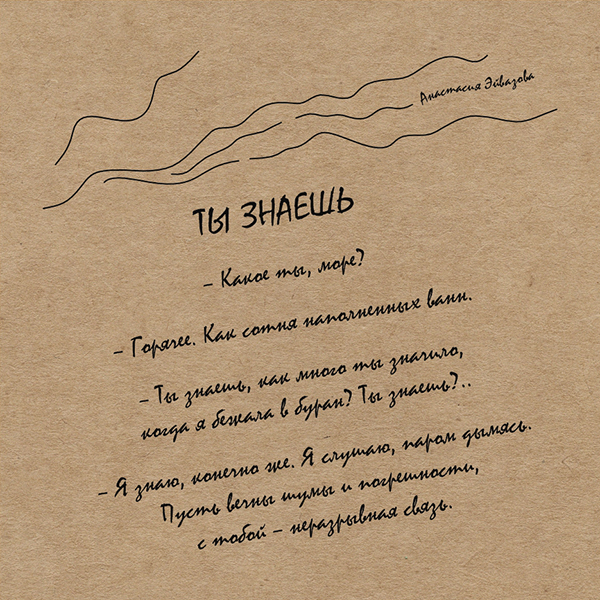 Анастасия Эйвазова
ТЫ ЗНАЕШЬ
– Какое ты, море?
– Горячее. Как сотня наполненных ванн.
– Ты знаешь, как много ты значило,
когда я бежала в буран? Ты знаешь?..
– Я знаю, конечно же. Я слушаю, паром дымясь.
Пусть вечны шумы и погрешности,
с тобой – неразрывная связь.